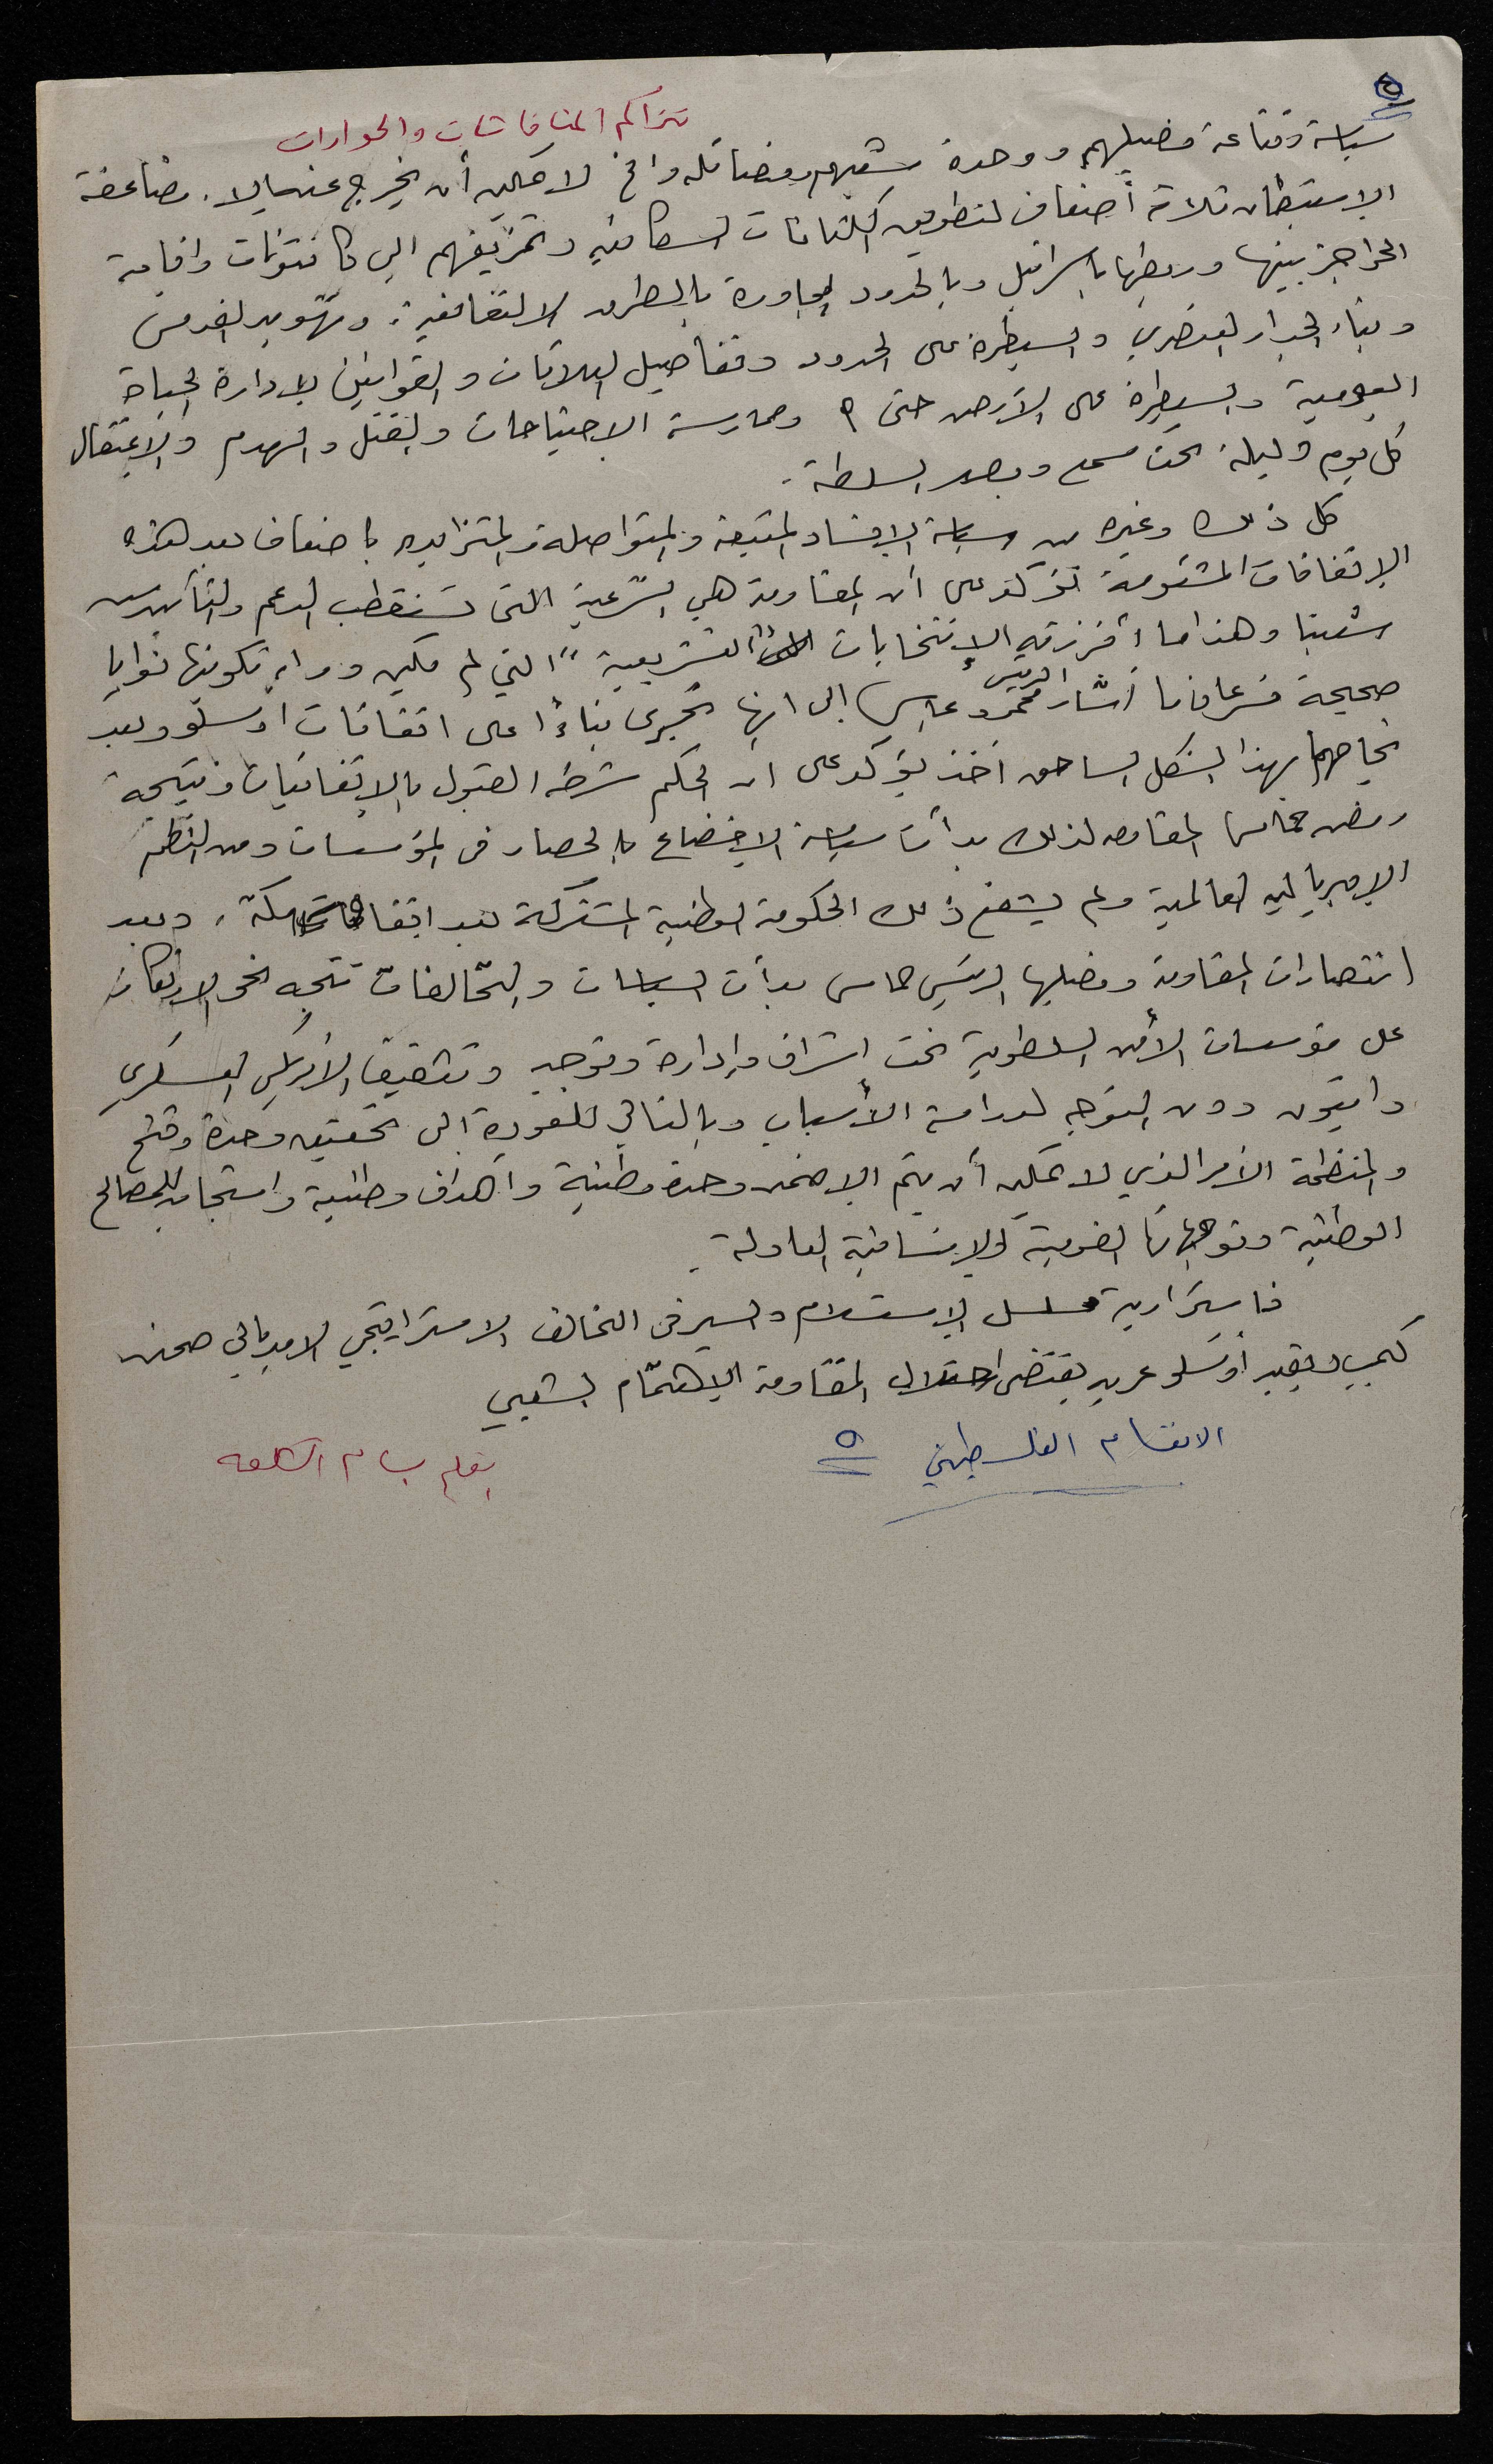 ٥
تتراكم المناقاشات والحوارات
سياسة وقناعة فصيلهم ووحدة شعبهم وفصائله وافح لا يمكن أن يخرج عنها إلا. مضاعفة
الاستيطان ثلاثة أضعاف لتطويق الكتانات السكانيه وتمزيقهم الى كانتونات واقامة
الحواجز بينها وربطها باسرائيل وبالحدود المجاورة بالطرق الالتفافية. وتهويد القدس
وبناء الجدار العنصري والسيطرة على الحدود وتفاصيل العلاقات والقوانين لإدارة الحياة
اليومية والسيطرة على الأرض حتى ٩ وممارسة الاجتياحات والقتل والهدم والإعتقال
كل يوم وليلة تحت مسمع وبصر السلطة.
كل ذلك وغيره من سياسة الإفساد المتبعة والمتواصلة والمتزايده باضعاف بعد هذه
الإتفاقات المشئومة تؤكد على أن المقاومة هي الشرعية التى تستقطب الدعم والتأييد من
شعبنا وهذا ما أفرزته الإنتخابات "التشريعية" التي لم يكن وراء تكوينها نوايا
صحيحة فسرعان ما أشار الرئيس محمود عباس إلى انها تجرى بناءًا على اتفاقات أوسلو وبعد
نجاحهما بهذا الشكل الساحق أخذ يؤكد على ان الحكم شرطه القبول بالإتفاقيات ونتيجة
رفض حماس المقاومه لذلك بدأت سياسة الإخضاع بالحصار في المؤسسات ومن النظم
الإمبرياليه العالمية ولم يشفع ذلك الحكومة الوطنية المشتركة بعد اتفاقات مكة. وبعد
انتصارات المقاومة وفصيلها الرئيسي حماس بدأت السياسات والتحالفات تتجه نحو الارتكاز
على مؤسسات الأمن السلطوية تحت اشراف وإدارة وتوجيه وتثقيف الأمريكي العسكري
دايتون دون التوجه لدراسة الأسباب وبالتالي للعودة الى تحقيق وحدة وفتح
والمنظمة الأمر الذي لا يمكن أن يتم الا ضمن وحدة وطنية واهداف وطنية واستجابة للمصالح
الوطنية وتوجهاتنا القومية والإنسانية العادلة.
فاستمرارية مسلسل الإستسلام والسير في التحالف الاستراتيجي الامبريالي ضمن
كمب ديفيد أوسلو عربيه يقتضى المقاومة الإهتمام الشعبي
الانقسام الفلسطيني ٥
بقلم بسام الشكعه